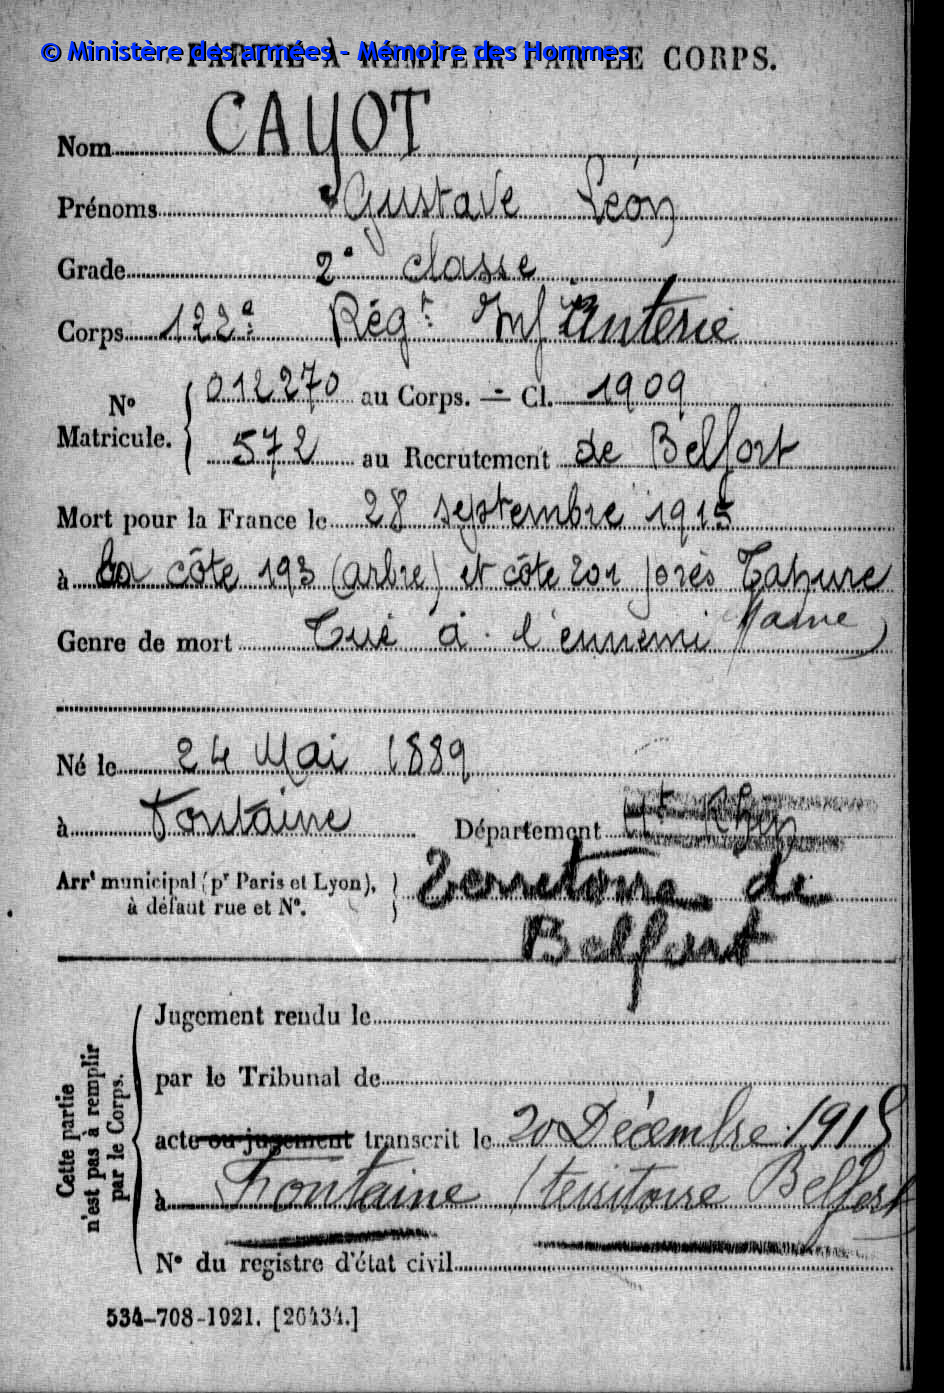 © Ministère des armées - Mémoire des Hommes
PARTIE À REMPLIR PAR LE CORPS.
Nom CAYOT
Prénoms Gustave Léon
Grade 2e classe
Corps 122e Régt Infanterie
No Matricule. 012270 au Corps. — Cl. 1909
572 au Recrutement de Belfort
Mort pour la France le 28 septembre 1915
à La côte 193 (arbre) et côte 201 près Tahure
Genre de mort Tué à l'ennemi Marne)
Né le 24 Mai 1889
à Fontaine Département Ht Rhin
Arrt municipal (pr Paris et Lyon), à défaut rue et No. Territoire de
Belfort
Cette partie n'est pas à remplir par le Corps.
Jugement rendu le
par le Tribunal de
acte ou jugement transcrit le 20 Décembre 1915
à Fontaine (territoire Belfort
No du registre d'état civil
534-708-1921. [26434.]